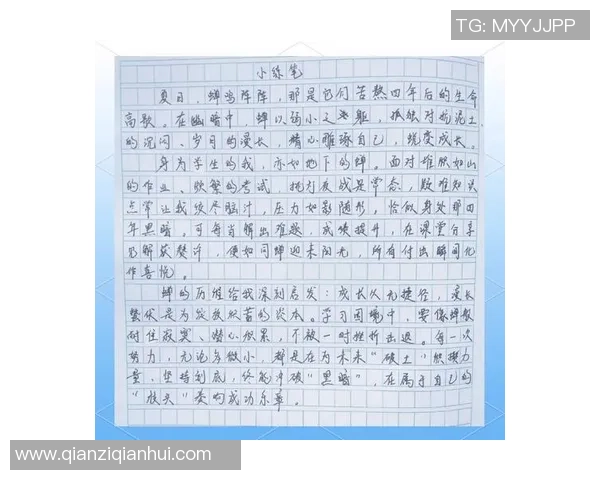 TG: MYYJJPP
小练笔
夏日，蝉鸣阵阵，那是它们苦熬四年后的生命
高歌。在幽暗中，蝉以弱小之躯，孤独对抗泥土
的沉闷、岁月的漫长，精心雕琢自己，蜕变成长。
身为学生的我，亦如地下的蝉。面对堆积如山
的作业、频繁的考试，挑灯夜战是常态，疑难知识
点常让我绞尽脑汁，压力如影随形，恰似身处那四
年黑暗。可每当解出难题，成绩提升，在课堂分享
见解获赞许，便如同蝉迎来阳光，所有付出瞬间化
作喜悦。
蝉的历程给我深刻启发：成长从无捷径，漫长
蛰伏是为绽放积蓄的资本。学习困境中，要像蝉般
耐住寂寞、潜心积累，不被一时挫折击退。每一次
努力，无论多微小，都是在为未来“破土”积攒力
量，坚持到底，终能冲破“黑暗”，在属于自己的
“枝头”奏响成功乐章。
www.qianziqianhui.com